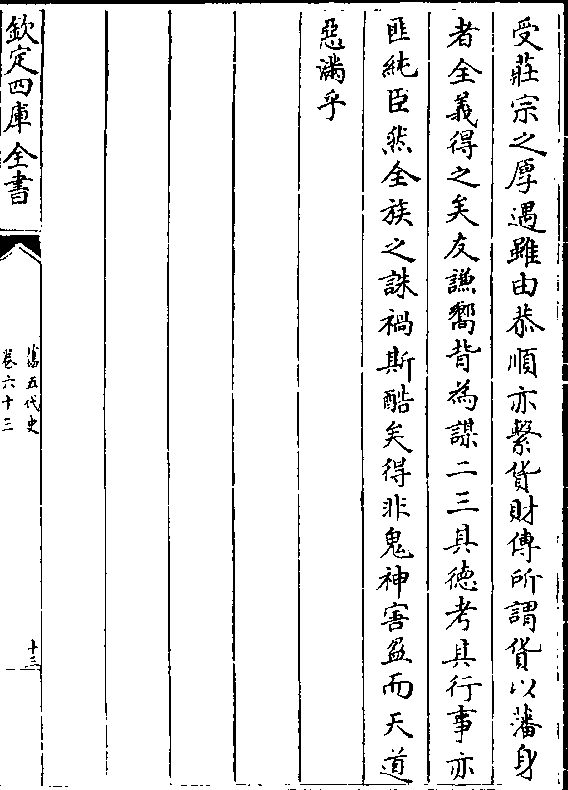 受莊宗之厚遇雖由恭順亦繫貨財傳所謂貨以藩身
者全義得之矣友謙嚮背為謀二三其德考其行事亦
匪純臣然全族之誅禍斯酷矣得非鬼神害盈而天道
惡滿乎
欽定四庫全書
舊五代史
卷六十三
十三